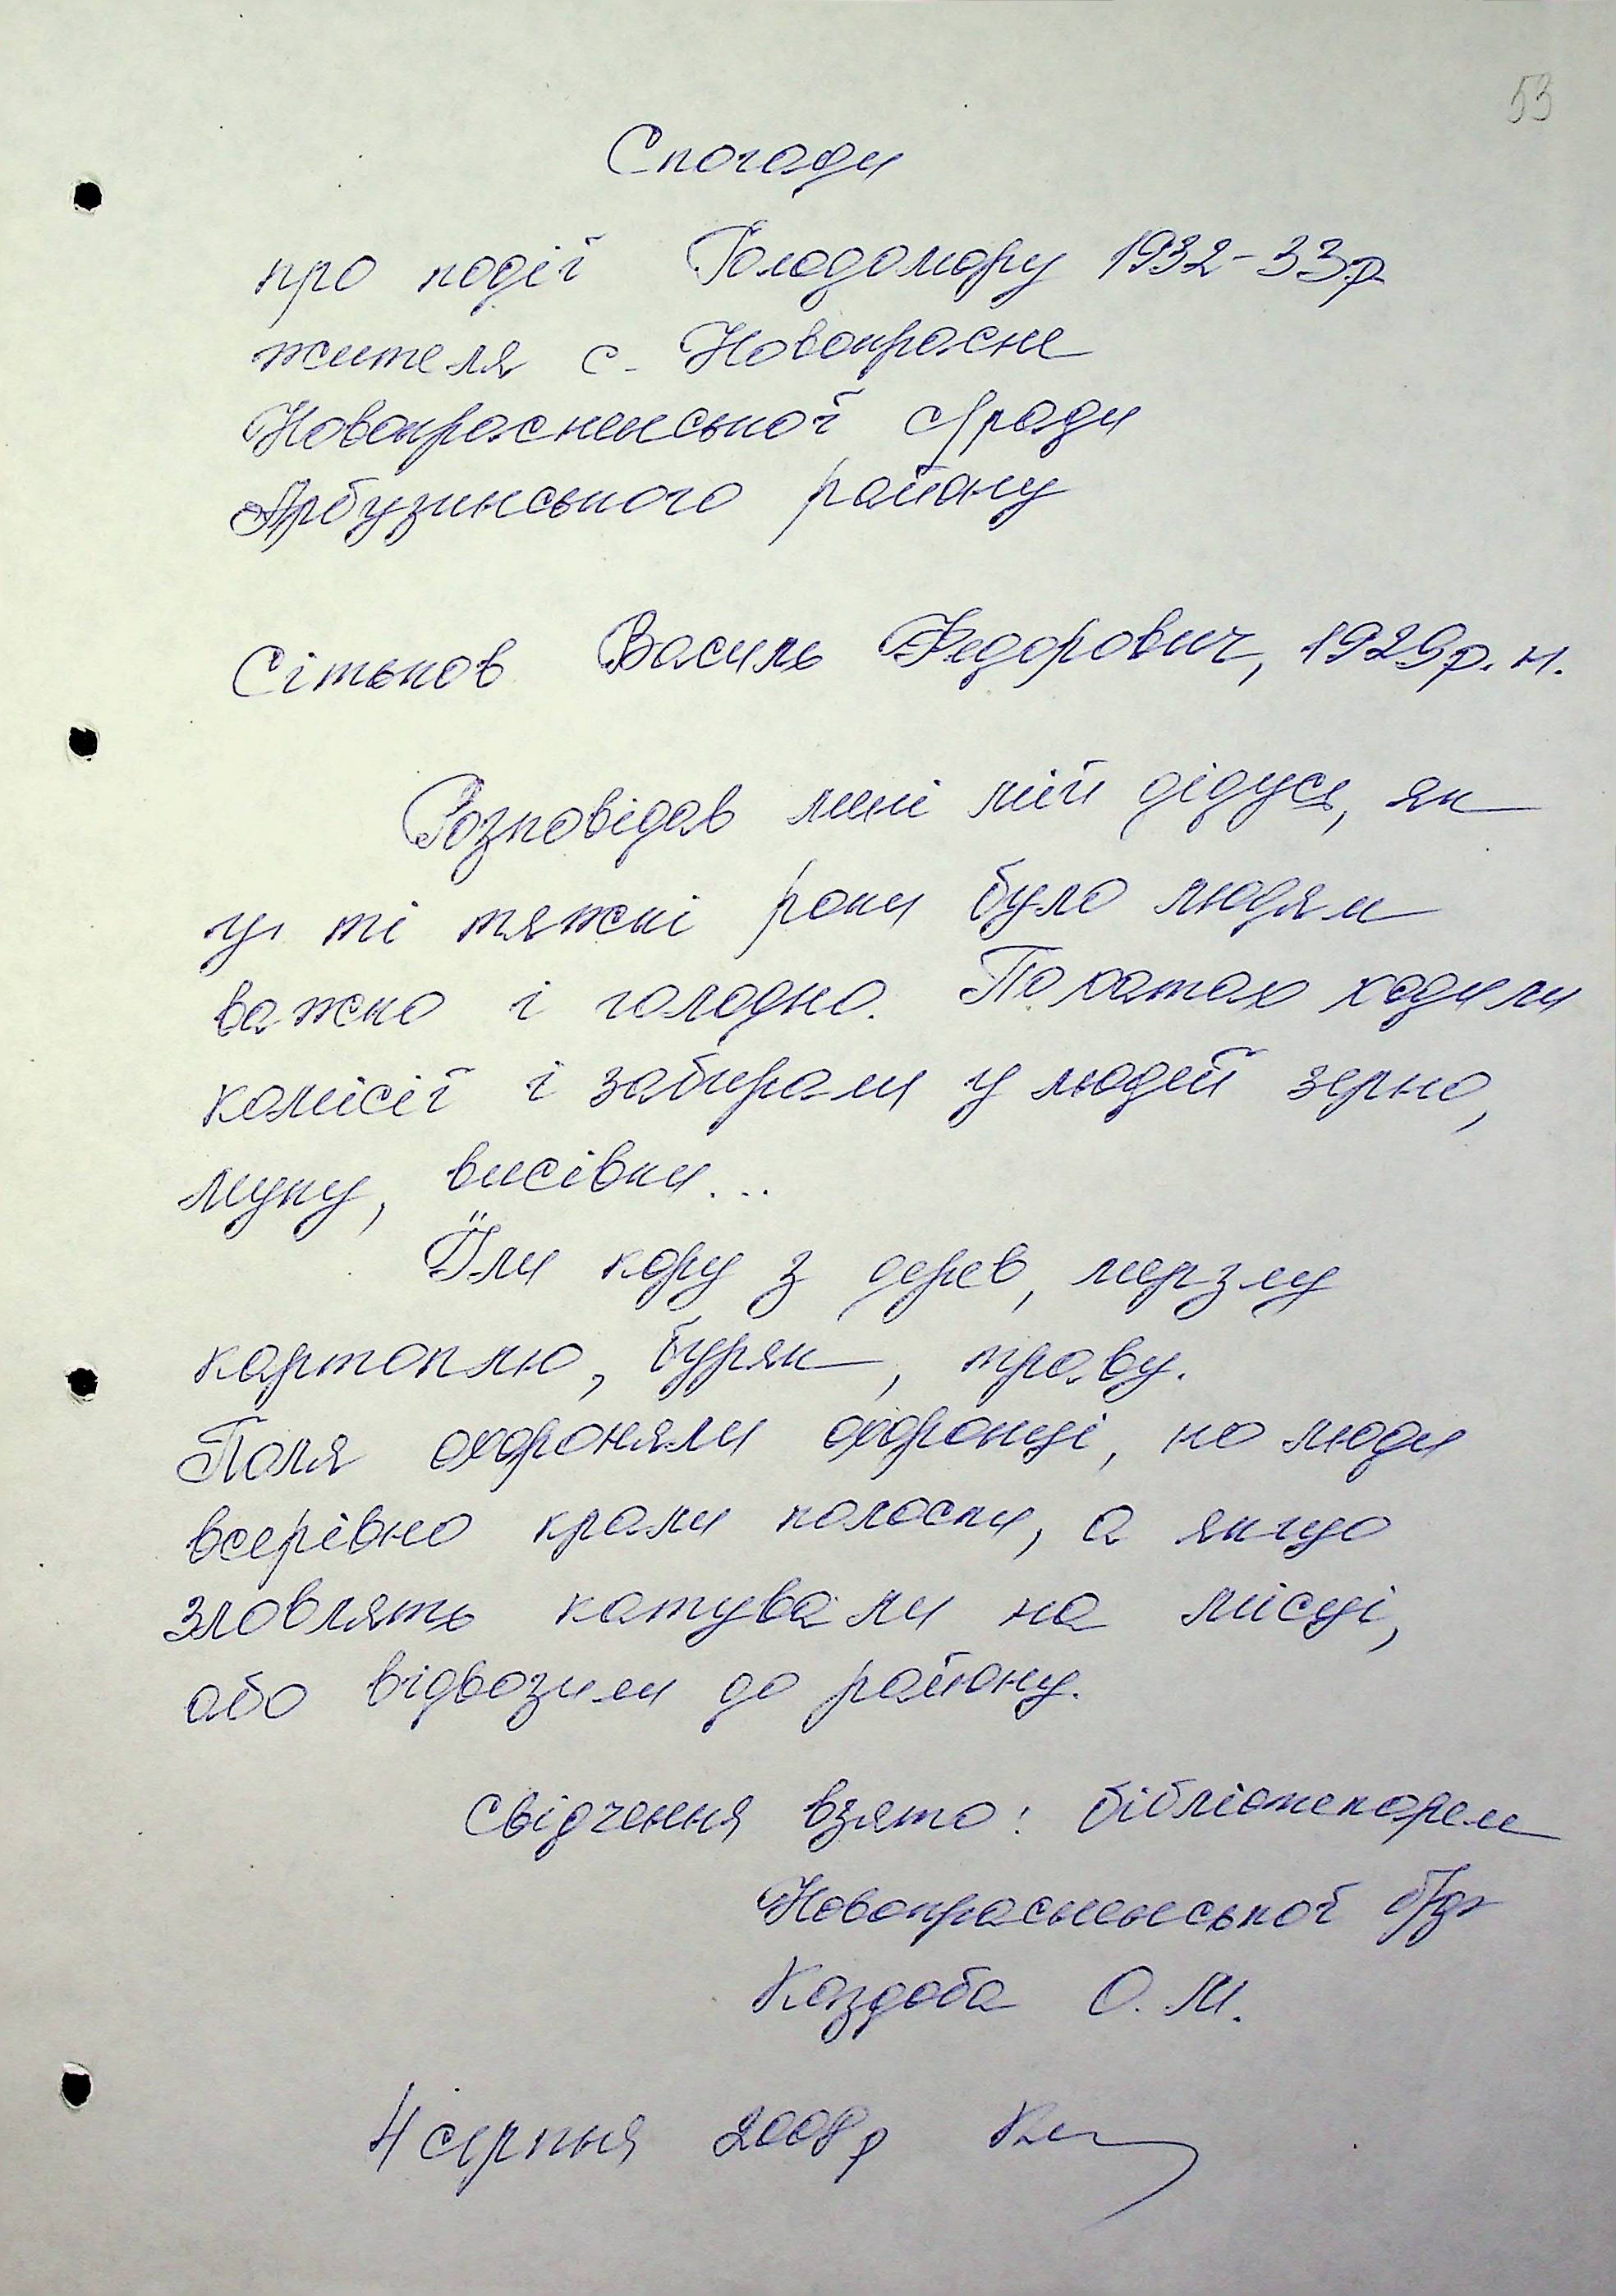 53
Спогади
про події Голодомору 1932-33р
жителя с. Новокрасне
Новокрасненської с/ради
Арбузинського району
Сітьков Василь Федорович, 1929р. н.
Розповідав мині мій дідусь, як
у ті тяжкі роки було людям
важко і голодно. По хатах ходили
комісії і забирали у людей зерно,
муку, висівки...
Їли кору з дерев, мерзлу
картоплю, буряк, траву.
Поля охороняли охоронці, но люди
всерівно крали колоски, а якщо
зловлять катували на місці,
або відвозили до району.
Свідчення взято: бібліотекарем
Новокрасненської б/ф
Каздоба О. М.
4 серпня 2008р